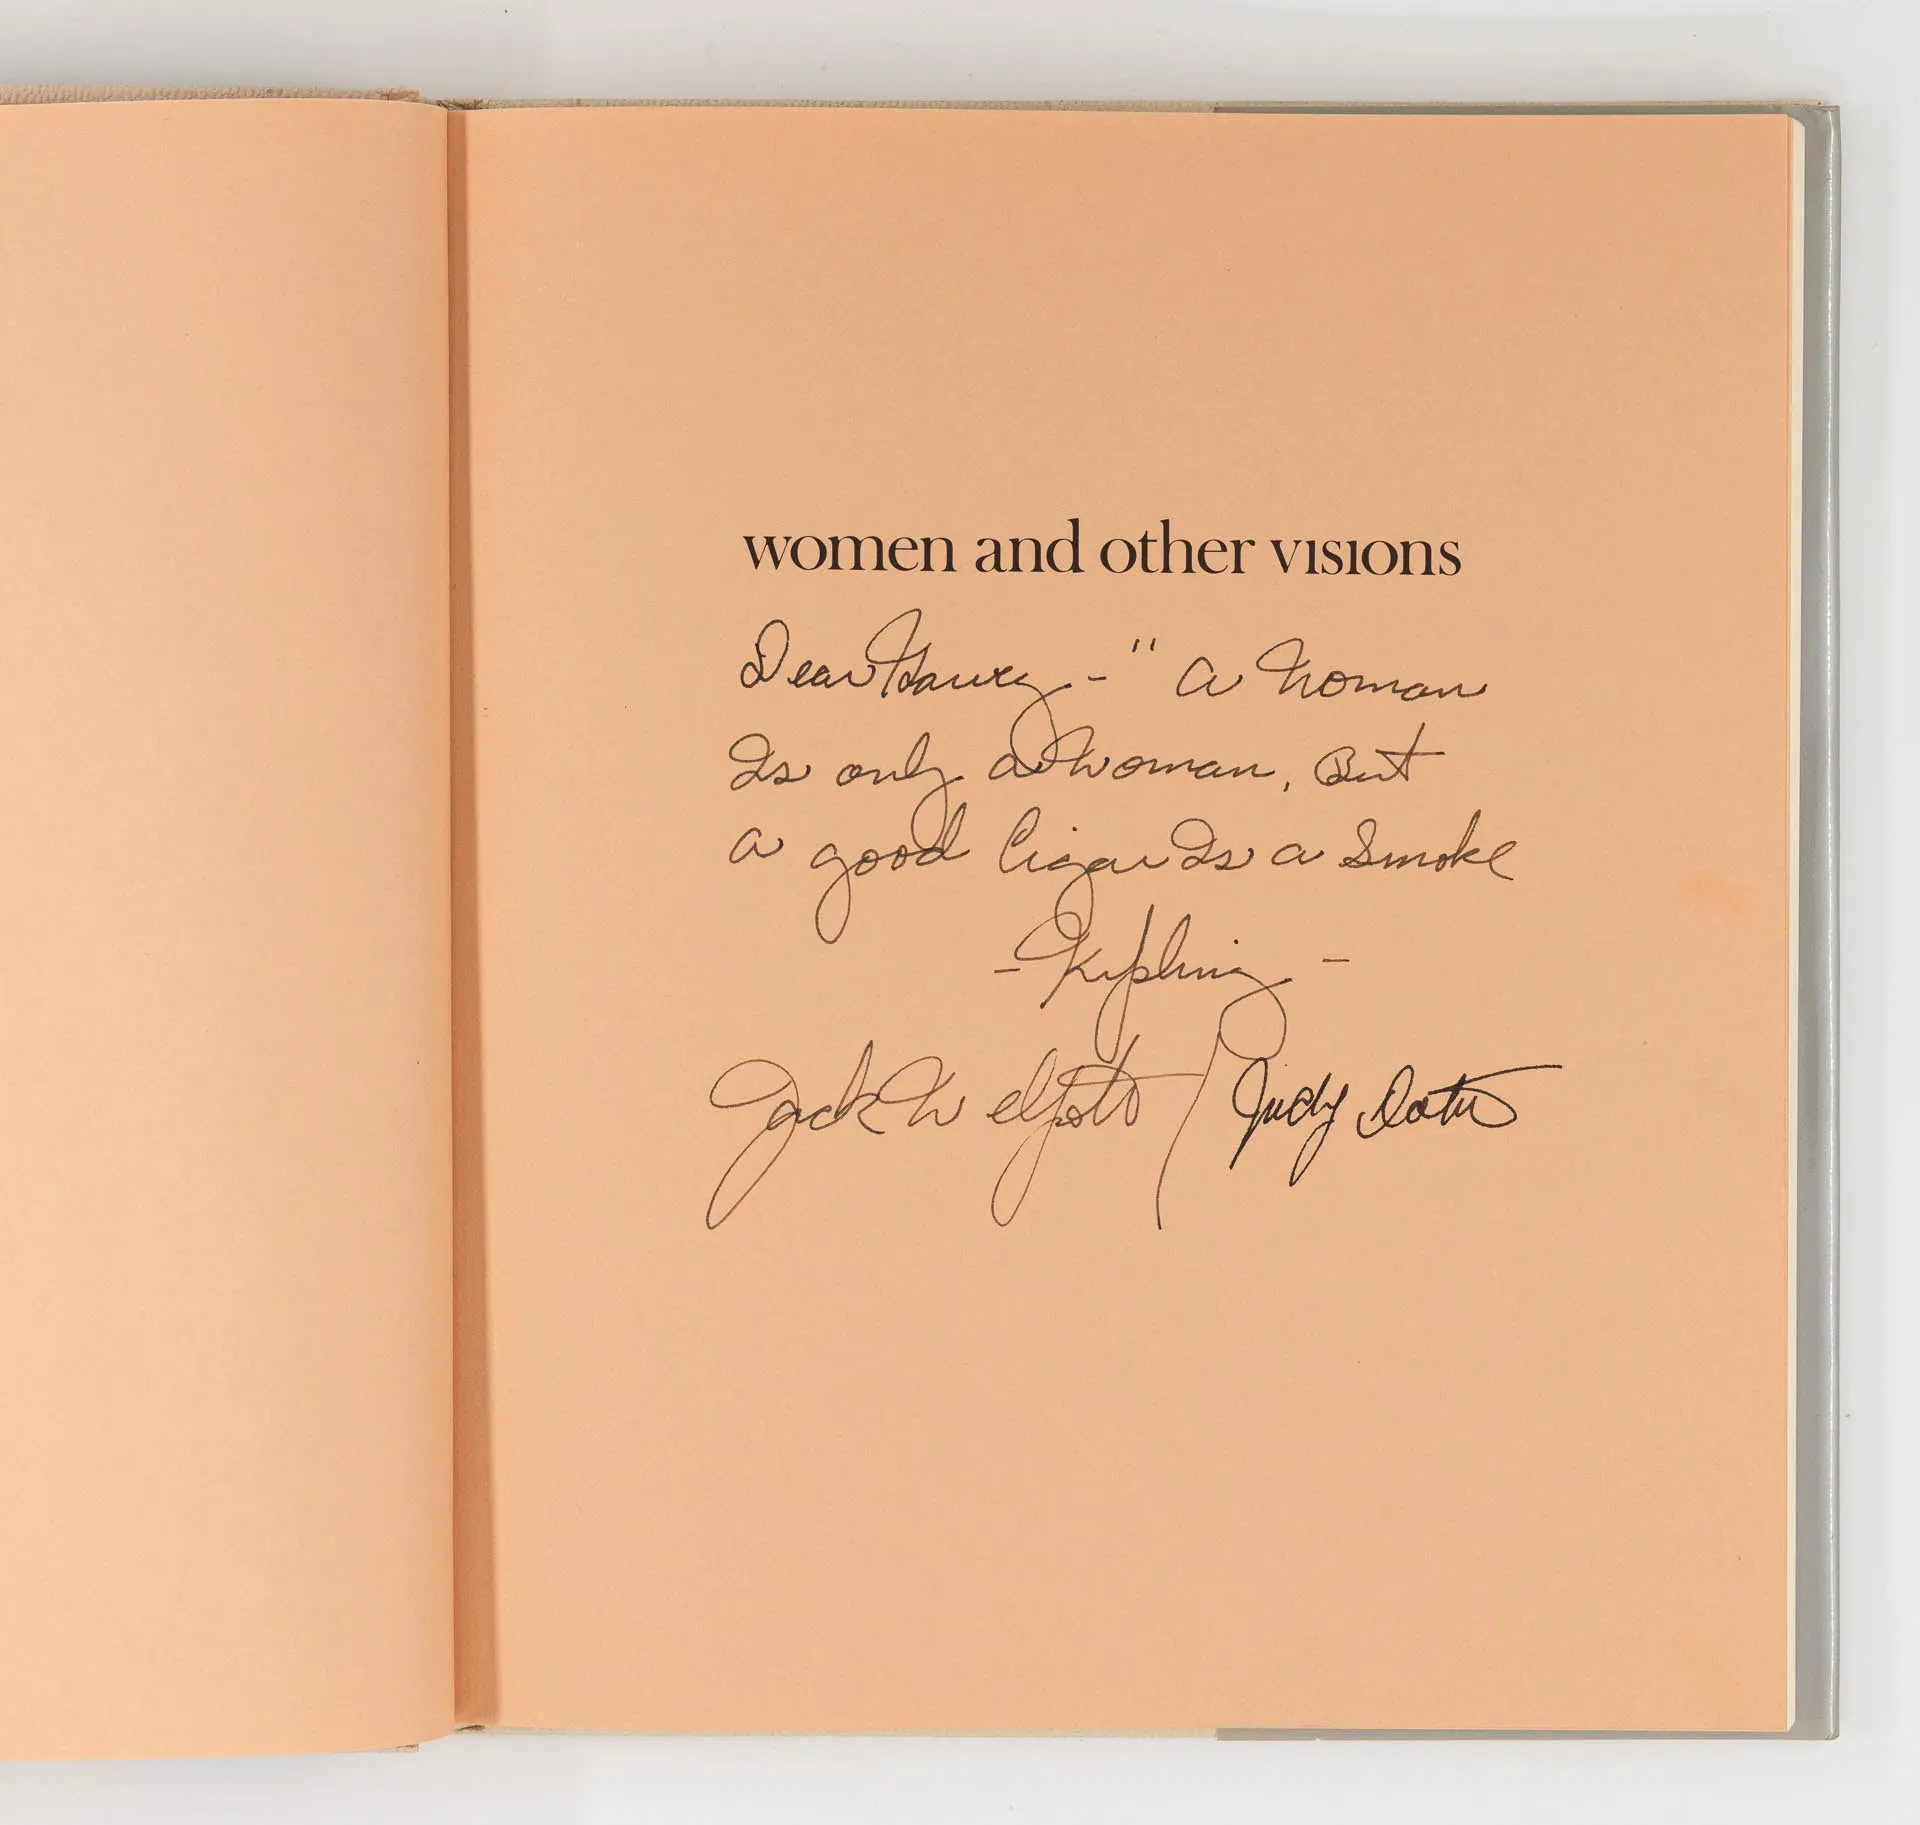 women and other visions
Dear Harvey - " A Woman
Is only a Woman, But
a good Cigar Is a Smoke
- Kipling -
Jack Welpott / Judy Dater